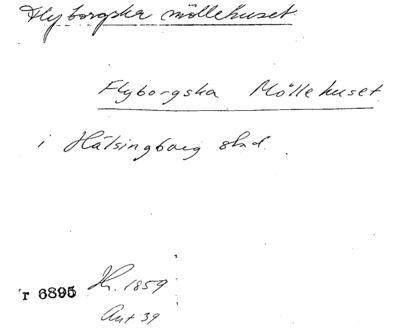 Flyborgska möllehuset
Flyborgska Möllehuset
i Hälsingborg stad.
r 6895 1859
Ant 39